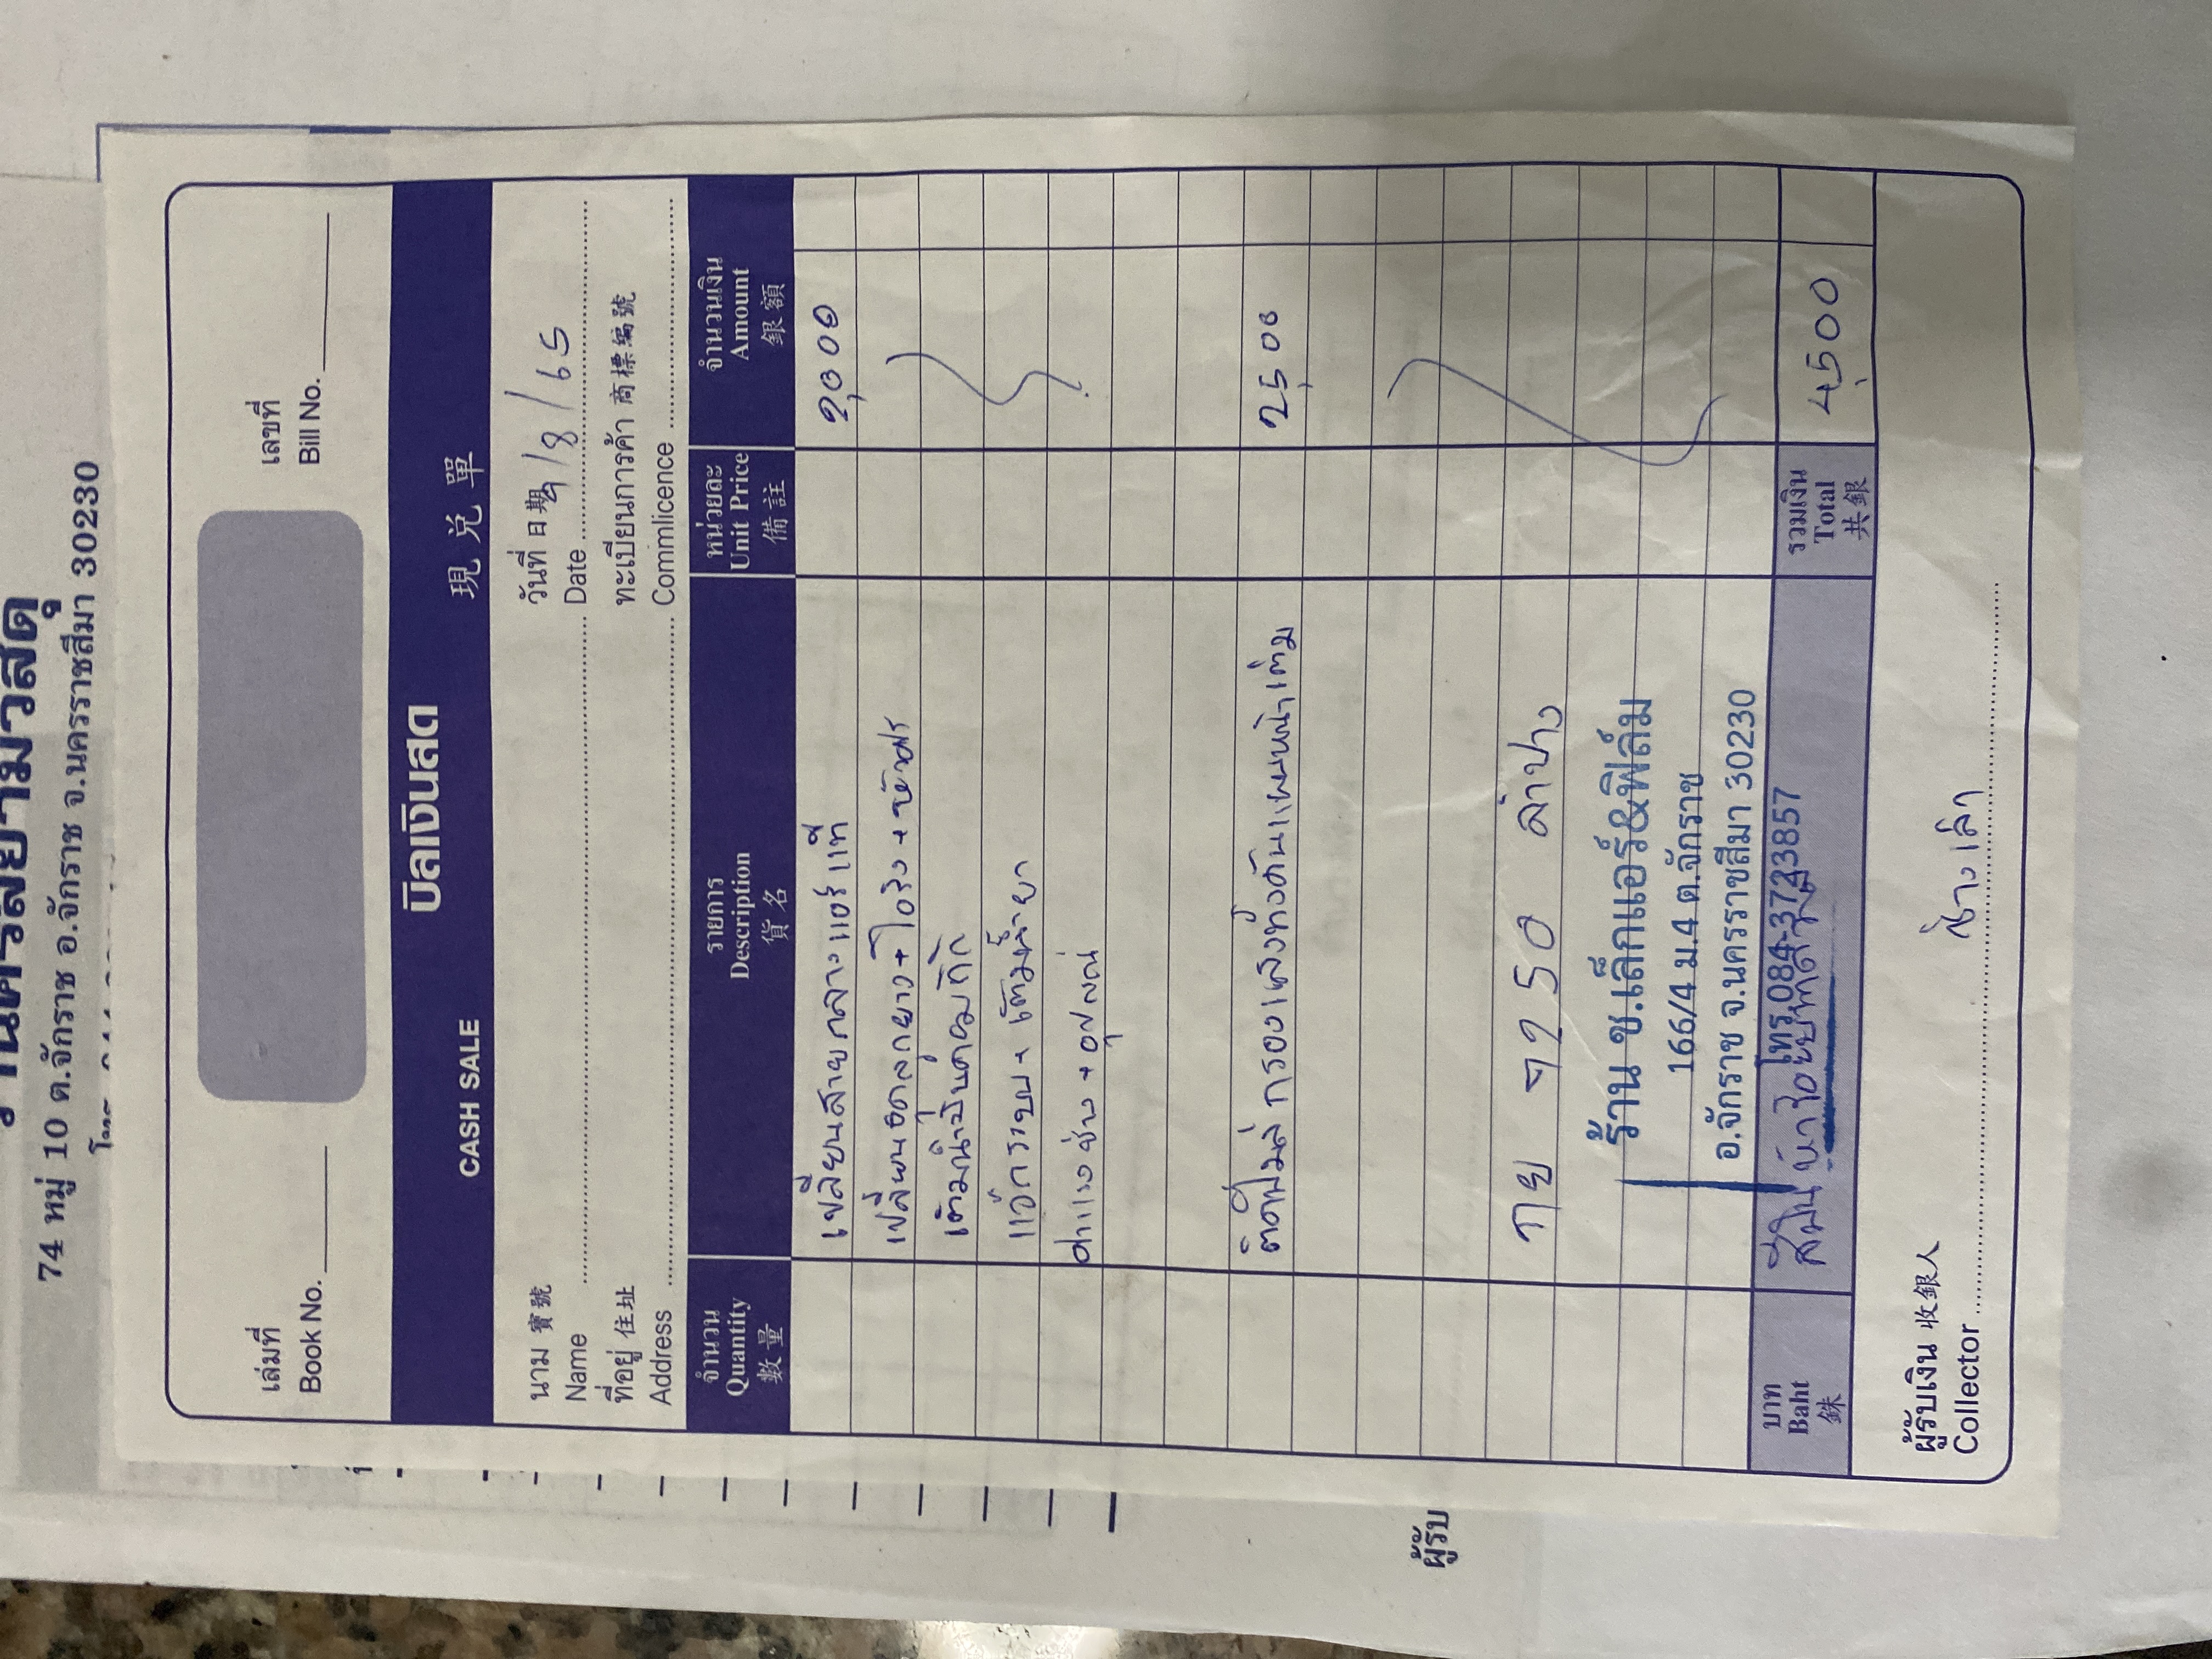 74 หมู่ 10 ต.จักราช อ.จักราช จ.นครราชสีมา 30230
เล่มที่ เลขที่
Book No. Bill No.
บิลเงินสด
CASH SALE 現兌單
นาม 寶號 วันที่ 日期
Name Date 9/8/65
ที่อยู่ 住址 ทะเบียนการค้า 商標編號
Address Commlicence
จำนวน รายการ หน่วยละ จำนวนเงิน
Quantity Description Unit Price Amount
數量 貨名 備註 銀額
เปลี่ยนสายกลางแอร์แท้ 2,000
เปลี่ยน + โอริง +
เติมน้ำมันคอม
แว็กระบบ + เติมน้ำยา
ค่าแรงช่าง + อุปกรณ์
กรองแสงทั้งคันแผ่นหน้าเต็ม 2,500
กย 9250 ลำปาง
ร้าน ช.เล็กแอร์&ฟิล์ม
166/4 ม.4 ต.จักราช
อ.จักราช จ.นครราชสีมา 30230
โทร.084-3723857
บาท รวมเงิน
Baht Total 4,500
銖 共銀
ผู้รับเงิน 收銀人
Collector ช่างเล็ก
ผู้รับ